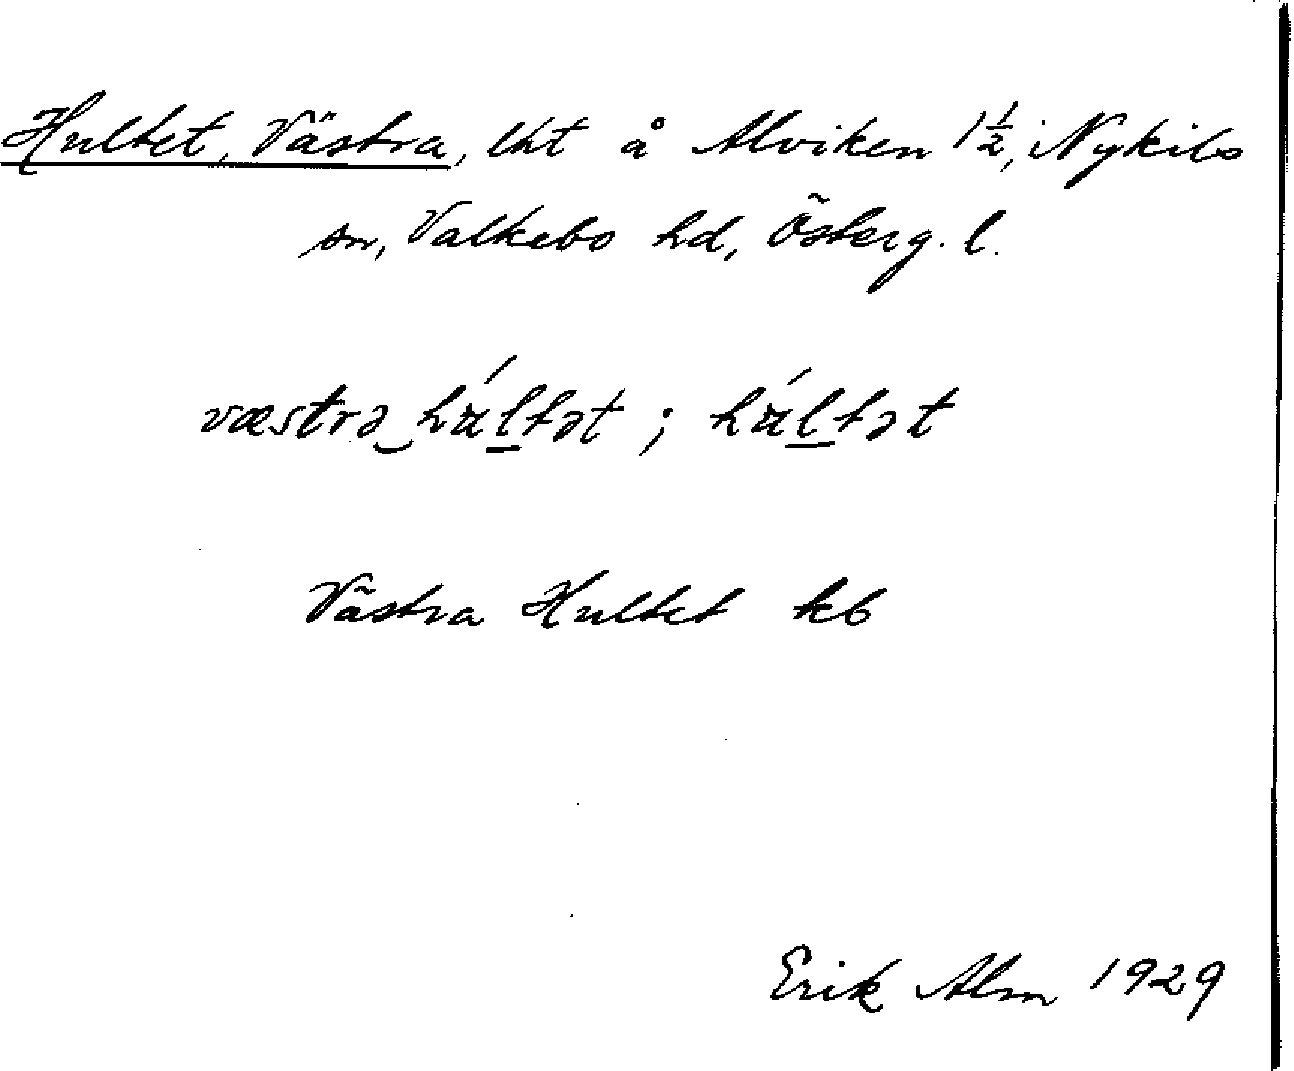 Hultet, Västra, lht å Alviken 1½, i Nykils
sn, Valkebo hd, Österg. l.
væstrə‿húltət ; húltət
Västra Hultet kb
Erik Alm 1929